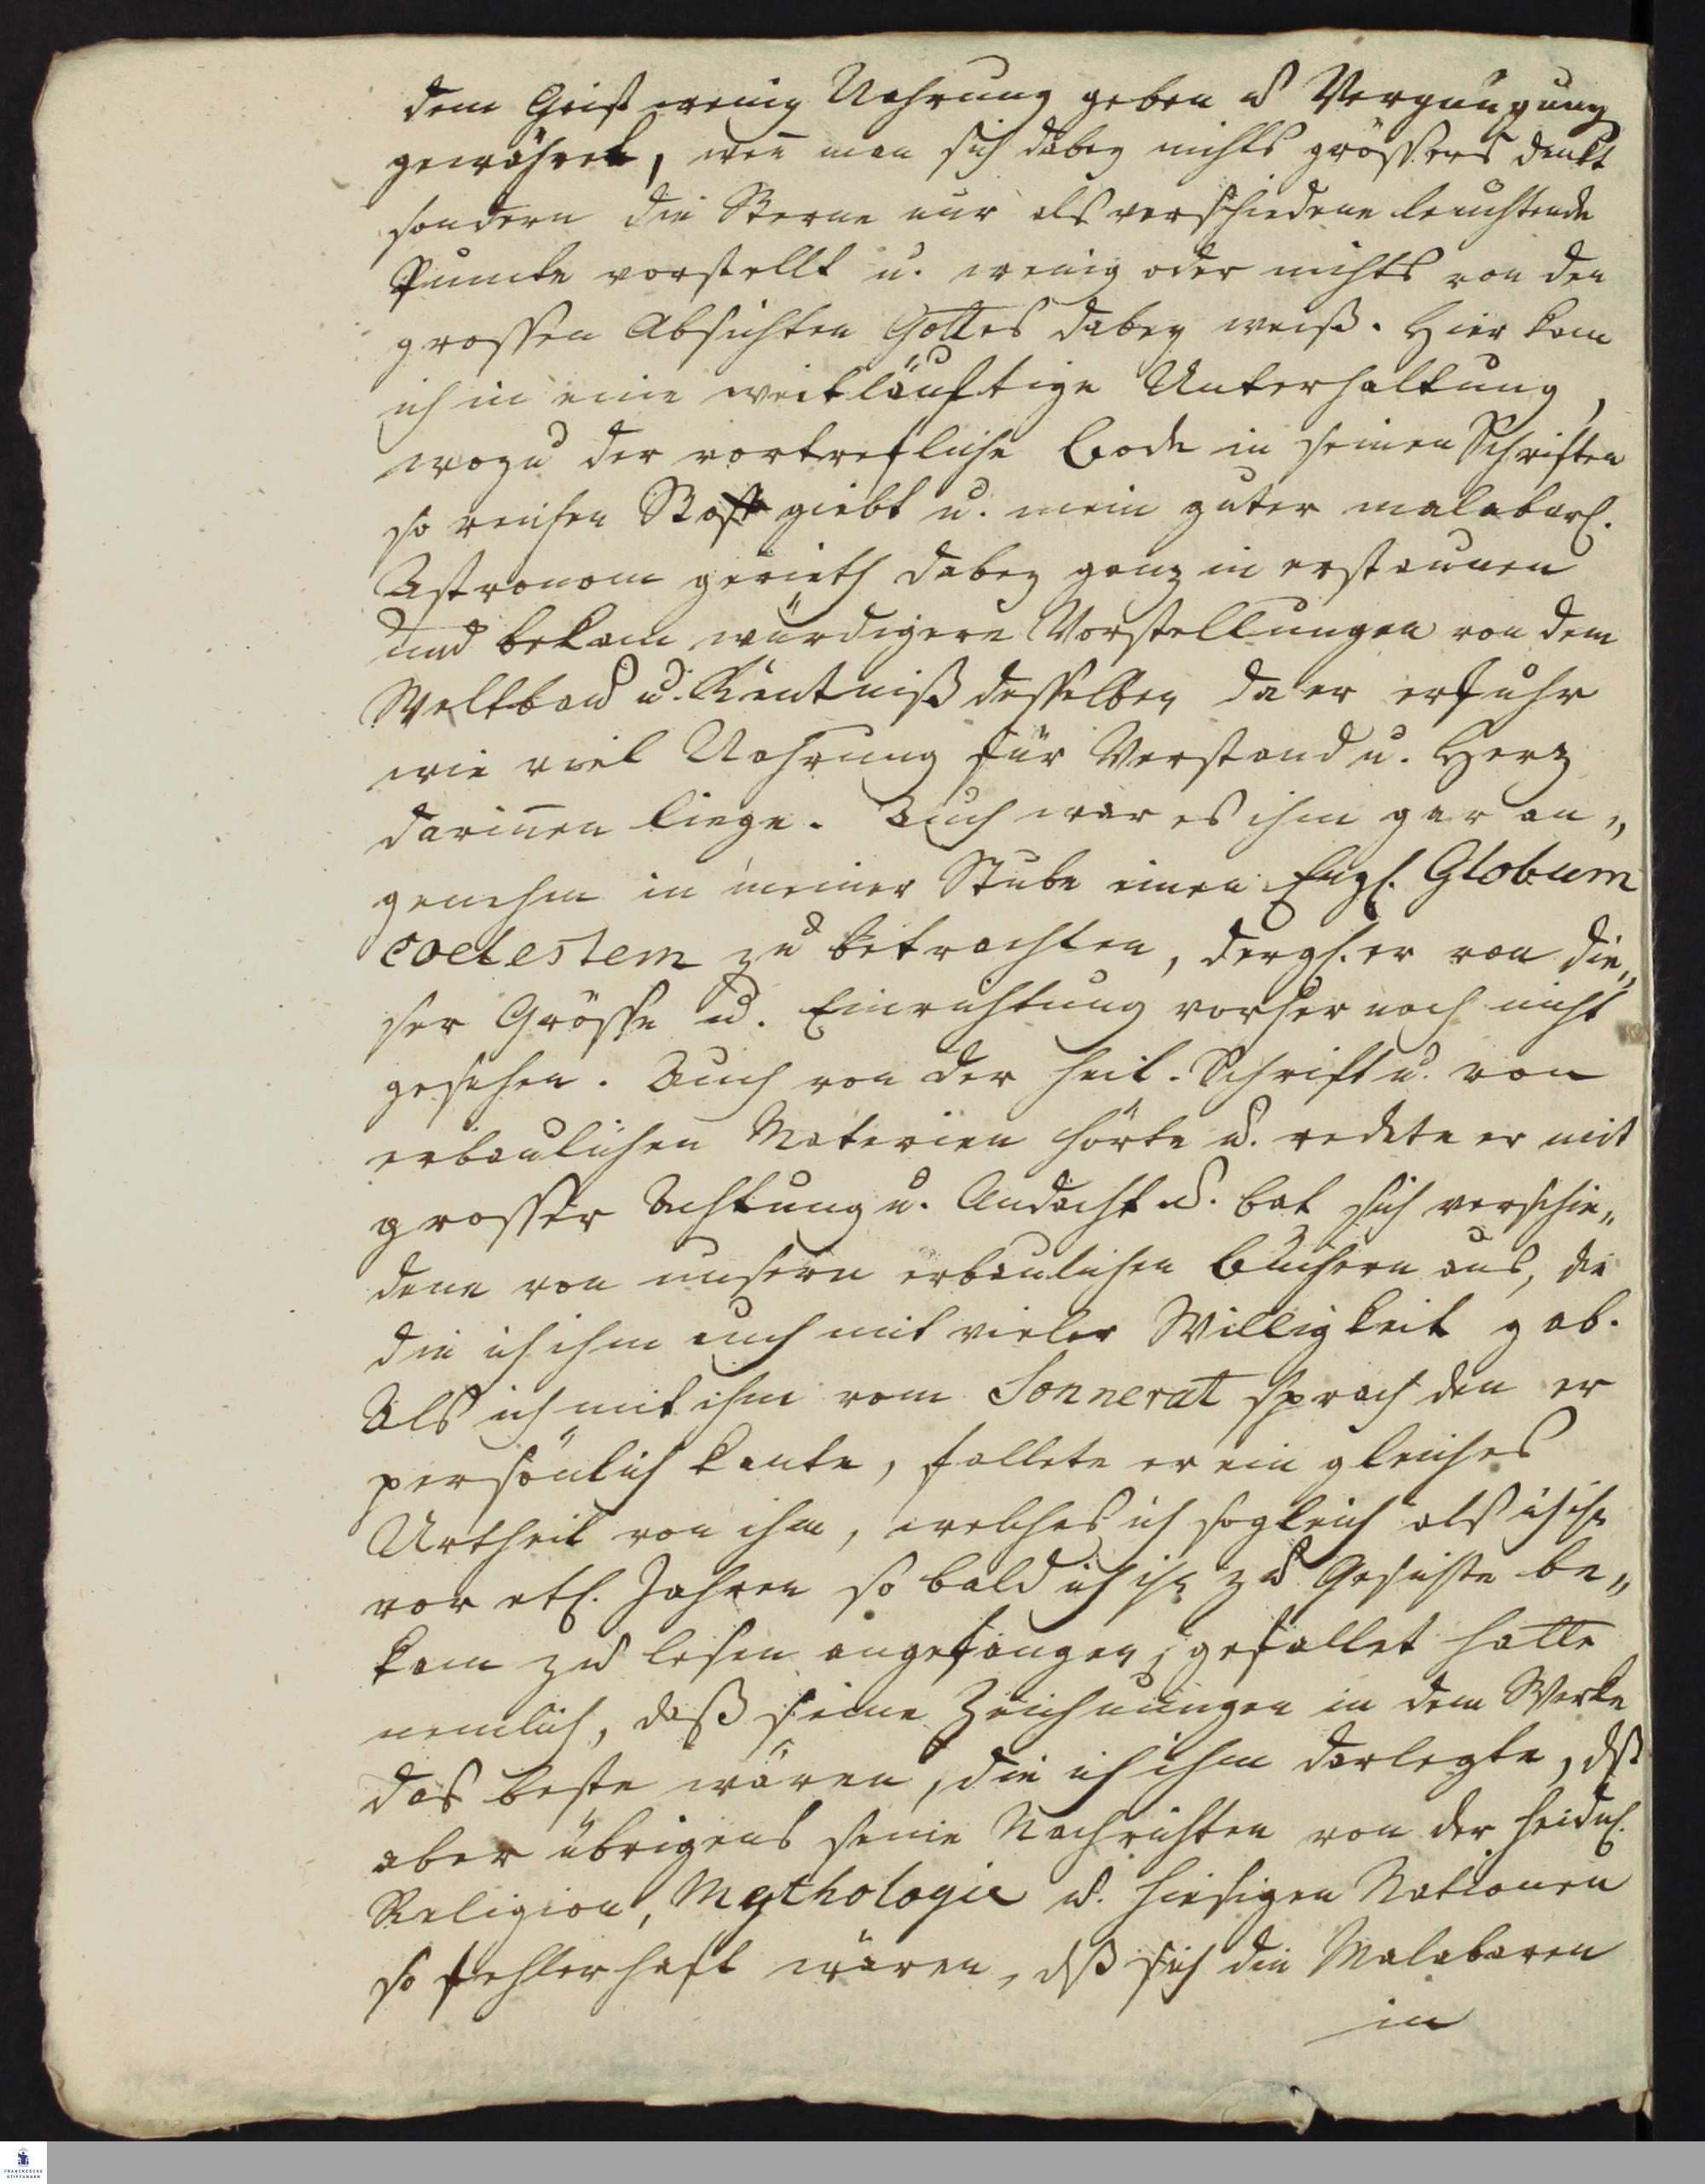 dem Geist wenig Nahrung geben u Vergnügung
gewähret, wen̄ man sich dabey nichts grössers denkt
sondern die Sterne nur als verschiedene leuchtende
Puncte vorstellt u. wenig oder nichts von den
grossen Absichten Gottes dabey weiß. Hier kam
ich in eine weitläuftige Unterhaltung,
wozu der vortrefliche Bode in seinen Schriften
so reichen Stoff giebt u. mein guter malabarl.
Astronom gerieth dabey ganz in erstaunen
und bekam würdigere Vorstellungen von dem
Weltbau u. Kentniß desselben da er erfuhr
wie viel Nahrung für Verstand u. Herz
darin̄en liege. Auch war es ihm gar an„
genehm in meiner Stube einen Engl. Globum
coelestem zu betrachten, dergl. er von die„
ser Grösse u. Einrichtung vorher noch nicht
gesehen. Auch von der heil. Schrift u. von
erbaulichen Materien hörte u. redete er mit
grosser Achtung u. Andacht u. bat sich verschie„
dene von unsern erbaulichen Büchern aus, die
die ich ihm auch mit vieler Willigkeit gab.
Als ich mit ihm vom Sonnerat sprach den er
persönlich kante, fällete er ein gleiches
Urtheil von ihm, welches ich sogleich als ich ihn
vor etl. Jahren so bald ich ihn zu Gesichte be„
kam zu lesen angefangen, gefället hatte
nemlich, daß seine Zeichnungen in dem Werke
das beste wären, die ich ihm darlegte, dß
aber übrigens seine Nachrichten von der heidnl.
Religion, Mythologie u. hiesigen Nationen
so fehlerhaft wären, dß sich die Malabaren
in
FRANCKESCHE
STIFTUNGEN